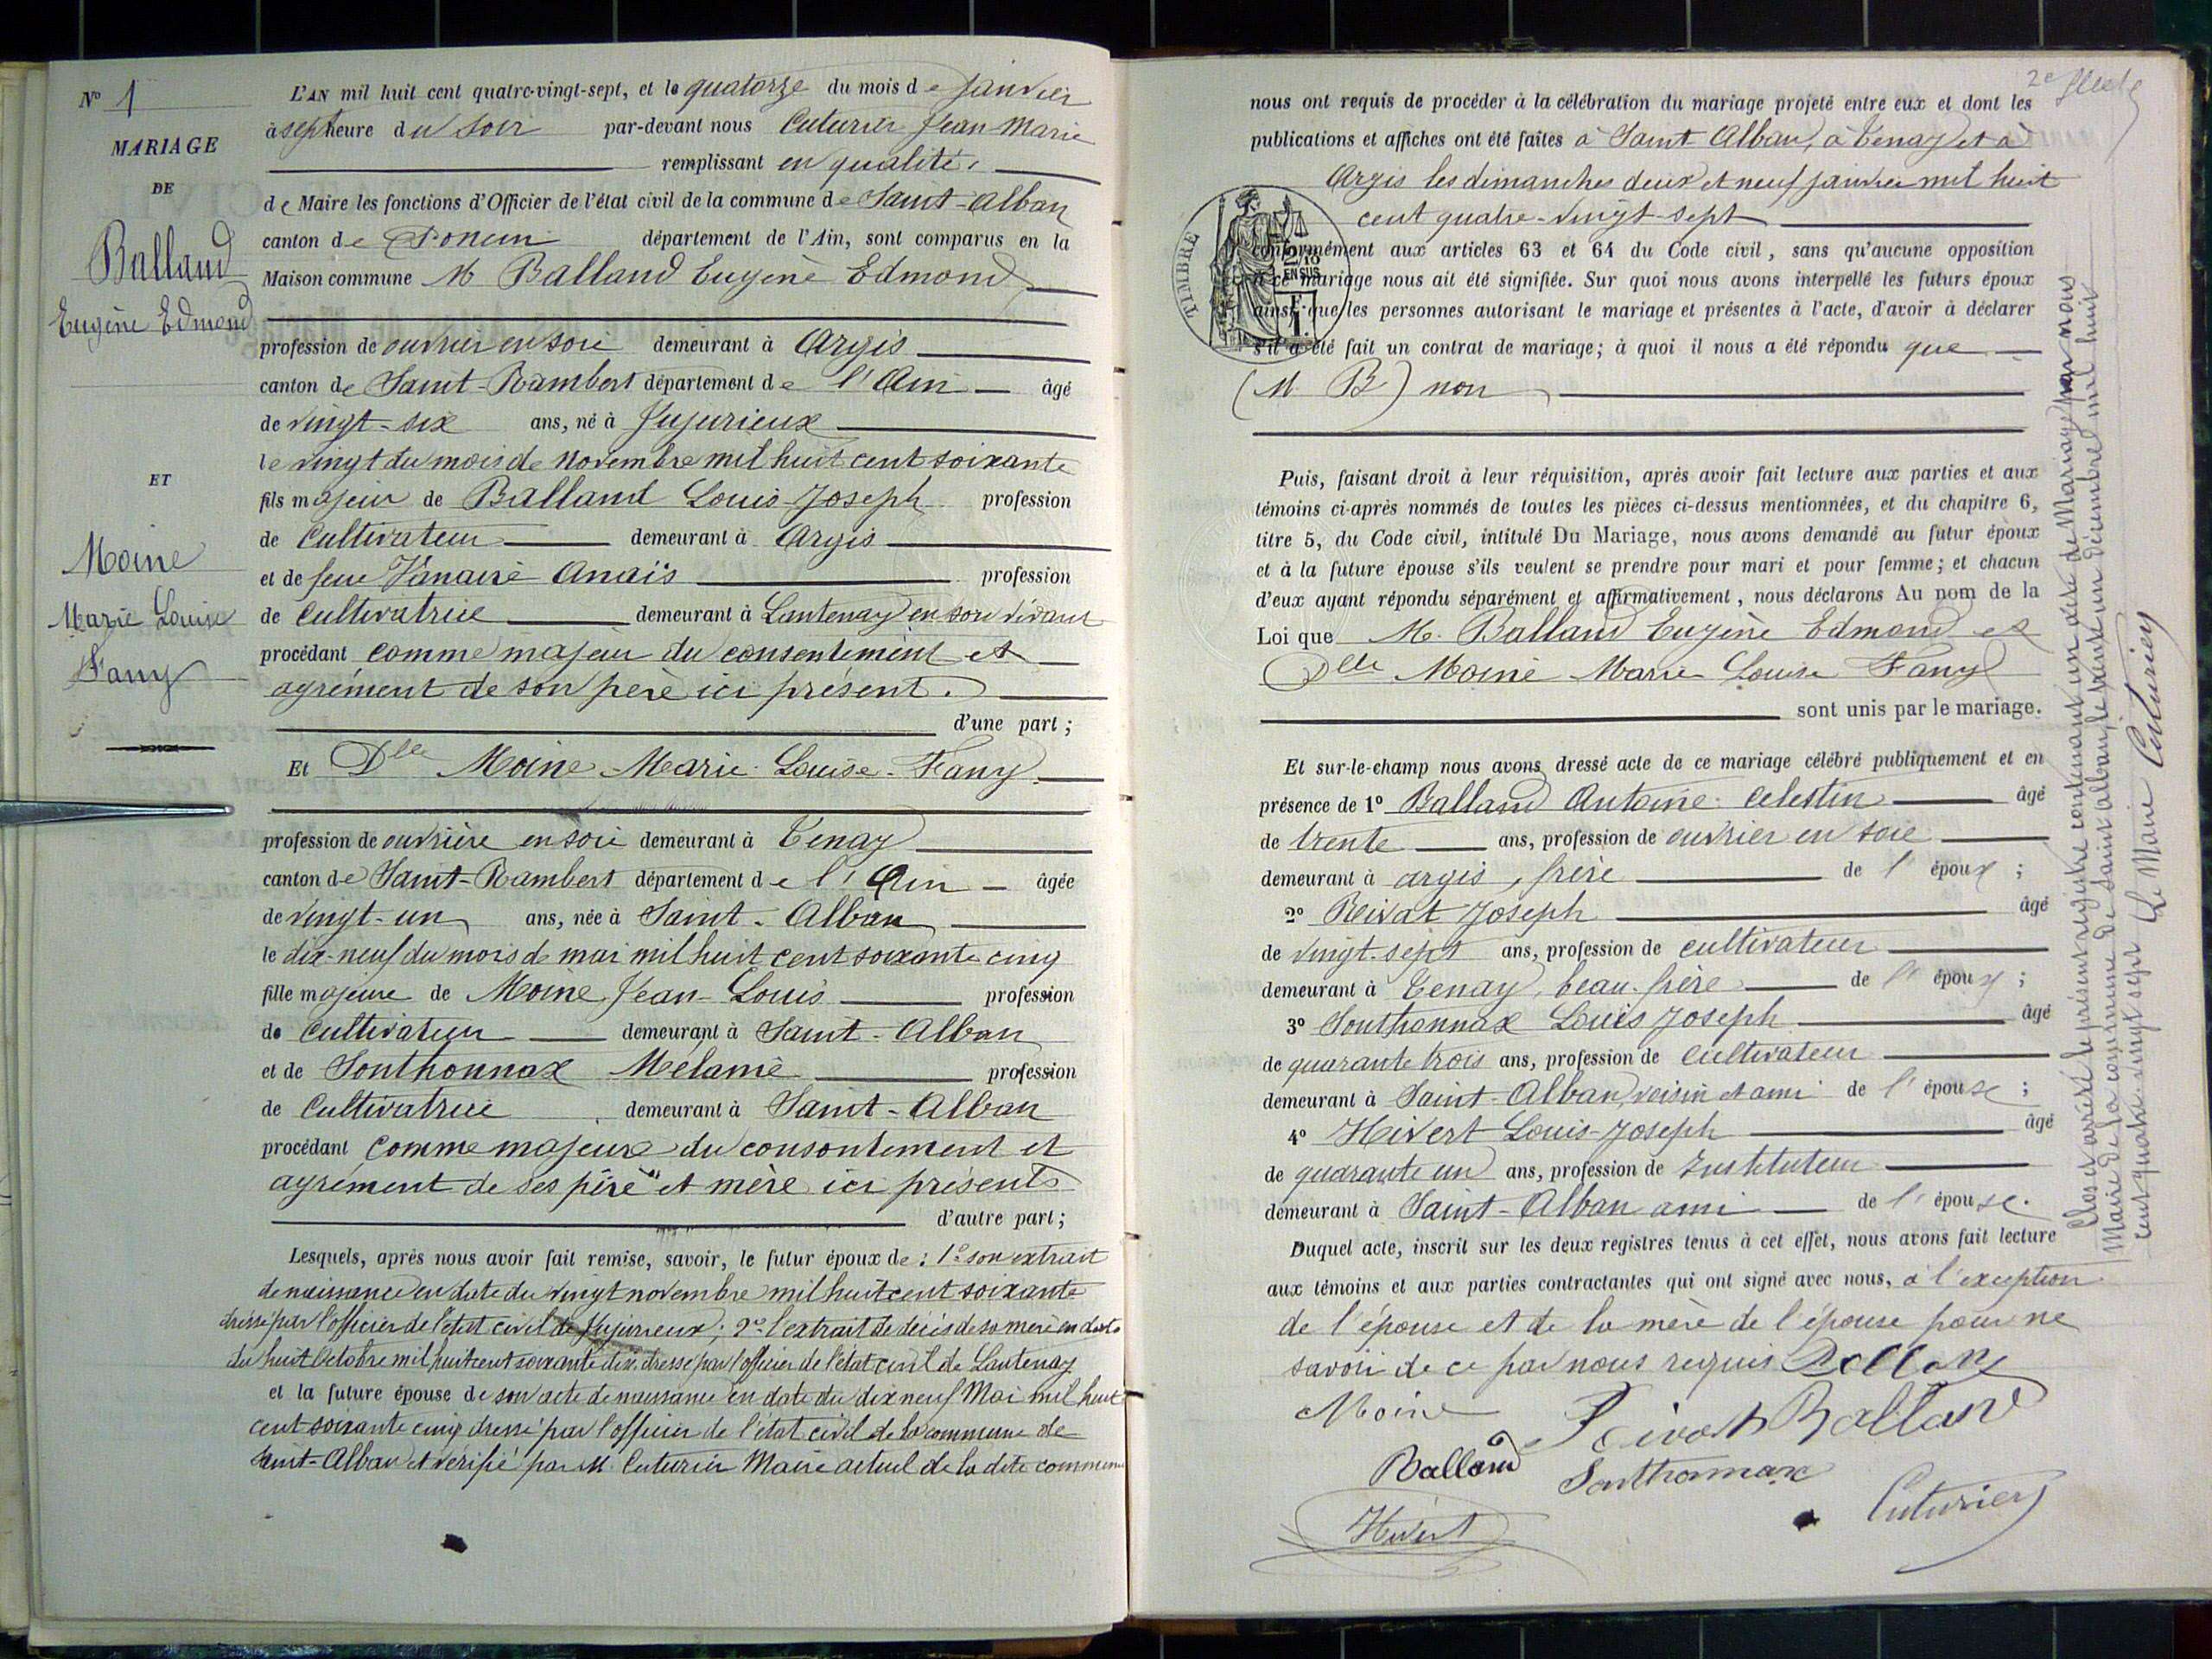 N° 1
MARIAGE
DE
Balland
Eugène Edmond
ET
Moine
Marie Louise
Fany
L'AN mil huit cent quatre-vingt-sept, et le quatorze du mois de Janvier
à sept heure du soir par-devant nous Cuturier Jean Marie
remplissant en qualité
de Maire les fonctions d'Officier de l'état civil de la commune de Saint-Alban
canton de Poncin département de l'Ain, sont comparus en la
Maison commune M Balland Eugène Edmond
profession de ouvrier en soie demeurant à Argis
canton de Saint-Rambert département de l'Ain âgé
de vingt-six ans, né à Jujurieux
le vingt du mois de Novembre mil huit cent soixante
fils majeur de Balland Louis Joseph profession
de Cultivateur demeurant à Argis
et de feue Vanaire Anaïs profession
de Cultivatrice demeurant à Lantenay en son vivant
procédant comme majeur du consentement et
agrément de son père ici présent.
d'une part ;
Et Dlle Moine Marie Louise Fany
profession de ouvrière en soie demeurant à Tenay
canton de Saint-Rambert département de l'Ain âgée
de vingt-un ans, née à Saint-Alban
le dix-neuf du mois de mai mil huit cent soixante cinq
fille majeure de Moine Jean-Louis profession
de Cultivateur demeurant à Saint-Alban
et de Southonnax Mélanie profession
de Cultivatrice demeurant à Saint-Alban
procédant comme majeure du consontement et
agrément de ses père et mère ici présents
d'autre part ;
Lesquels, après nous avoir fait remise, savoir, le futur époux de : 1° son extrait
de naissance en date du vingt novembre mil huit cent soixante
dressé par l'officier de l'état civil de Jujurieux ; 2° l'extrait de décès de sa mère en date
du huit Octobre mil huit cent soixante dix dressé par l'officier de l'état civil de Lantenay
et la future épouse de son acte de naissance en date du dix neuf Mai mil huit
cent soixante cinq dressé par l'officier de l'état civil de la commune de
Saint-Alban et vérifié par M. Cuturier Maire actuel de la dite commune
2e
nous ont requis de procéder à la célébration du mariage projeté entre eux et dont les
publications et affiches ont été faites à Saint Alban, à Tenay et à
Argis les dimanches deux et neuf janvier mil huit
cent quatre-vingt-sept
TIMBRE
2/10
EN SUS
conformément aux articles 63 et 64 du Code civil, sans qu'aucune opposition
à ce mariage nous ait été signifiée. Sur quoi nous avons interpellé les futurs époux
ainsi que les personnes autorisant le mariage et présentes à l'acte, d'avoir à déclarer
s'il a été fait un contrat de mariage ; à quoi il nous a été répondu que
(M B) non
Puis, faisant droit à leur réquisition, après avoir fait lecture aux parties et aux
témoins ci-après nommés de toutes les pièces ci-dessus mentionnées, et du chapitre 6,
titre 5, du Code civil, intitulé Du Mariage, nous avons demandé au futur époux
et à la future épouse s'ils veulent se prendre pour mari et pour femme ; et chacun
d'eux ayant répondu séparément et affirmativement, nous déclarons Au nom de la
Loi que M. Balland Eugène Edmond et
Dlle Moine Marie Louise Fany
sont unis par le mariage.
Et sur-le-champ nous avons dressé acte de ce mariage célébré publiquement et en
présence de 1° Balland Antoine Celestin âgé
de trente ans, profession de ouvrier en soie
demeurant à argis, frère de l'époux ;
2° Reivat Joseph âgé
de vingt-sept ans, profession de cultivateur
demeurant à Tenay, beau-frère de l'époux ;
3° Southonnax Louis Joseph âgé
de quarante trois ans, profession de Cultivateur
demeurant à Saint-Alban, voisin et ami de l'épouse ;
4° Hivert Louis-Joseph âgé
de quarante un ans, profession de Instituteur
demeurant à Saint-Alban ami de l'épouse.
Duquel acte, inscrit sur les deux registres tenus à cet effet, nous avons fait lecture
aux témoins et aux parties contractantes qui ont signé avec nous, à l'exception
de l'épouse et de la mère de l'épouse pour ne
savoir de ce par nous requis Balland
Moine Reivat Balland
Balland Southonnax
Hivert Cuturier
Clos et arrêté le présent registre contenant un acte de Mariage par nous
Maire de la commune de Saint alban, le trente un décembre mil huit
cent quatre-vingt sept Le Maire Cuturier